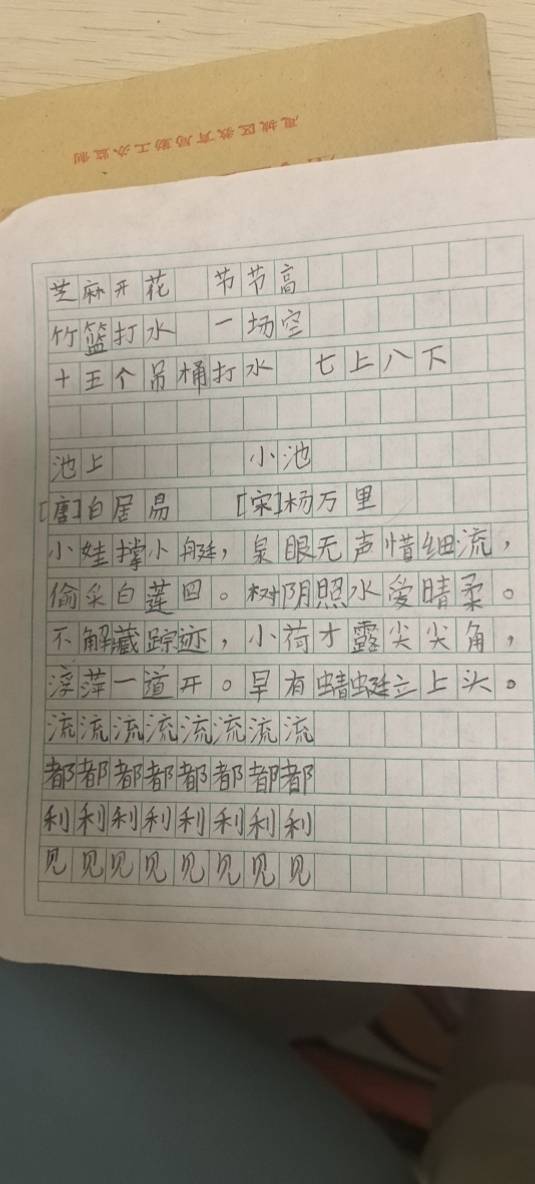 凰城区教育局勤工办监制
芝麻开花 节节高
竹篮打水 一场空
十五个吊桶打水 七上八下
池上 小池
[唐]白居易 [宋]杨万里
小娃撑小艇，泉眼无声惜细流，
偷采白莲回。树阴照水爱晴柔。
不解藏踪迹，小荷才露尖尖角，
浮萍一道开。早有蜻蜓立上头。
流流流流流流流流
都都都都都都都都
利利利利利利利利
见见见见见见见见